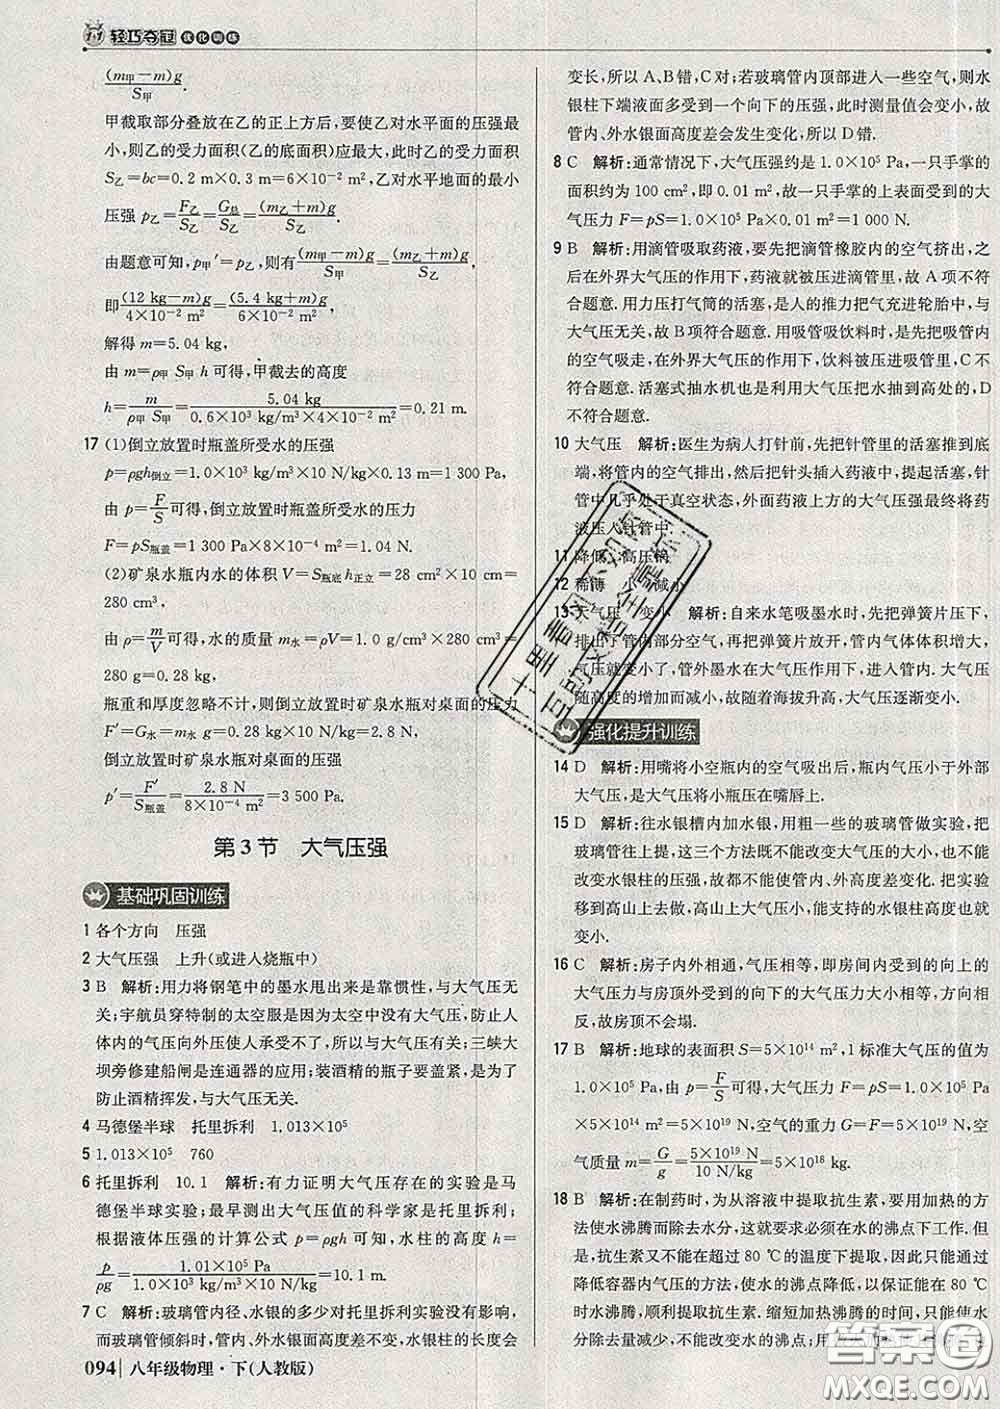 1+1 轻巧夺冠 优化训练
(m甲－m)g/S甲.
甲截取部分叠放在乙的正上方后,要使乙对水平面的压强最
小,则乙的受力面积(乙的底面积)应最大,此时乙的受力面积
S乙=bc=0.2 m×0.3 m=6×10⁻² m²,乙对水平地面的最小
压强 p乙=F乙/S乙=G总/S乙=(m乙＋m)g/S乙.
由题意可知,p甲′=p乙,则有(m甲－m)g/S甲=(m乙＋m)g/S乙,
即(12 kg－m)g/4×10⁻² m²=(5.4 kg＋m)g/6×10⁻² m²,
解得 m=5.04 kg,
由 m=ρ甲 S甲 h 可得,甲截去的高度
h=m/ρ甲 S甲=5.04 kg/0.6×10³ kg/m³×4×10⁻² m²=0.21 m.
17 (1)倒立放置时瓶盖所受水的压强
p=ρgh倒立=1.0×10³ kg/m³×10 N/kg×0.13 m=1 300 Pa,
由 p=F/S 可得,倒立放置时瓶盖所受水的压力
F=pS瓶盖=1 300 Pa×8×10⁻⁴ m²=1.04 N.
(2)矿泉水瓶内水的体积 V=S瓶底 h正立=28 cm²×10 cm=
280 cm³,
由 ρ=m/V可得,水的质量 m水=ρV=1.0 g/cm³×280 cm³=
280 g=0.28 kg,
瓶重和厚度忽略不计,则倒立放置时矿泉水瓶对桌面的压力
F′=G水=m水 g=0.28 kg×10 N/kg=2.8 N,
倒立放置时矿泉水瓶对桌面的压强
p′=F′/S瓶盖=2.8 N/8×10⁻⁴ m²=3 500 Pa.
第 3 节 大气压强
基础巩固训练
1 各个方向 压强
2 大气压强 上升(或进入烧瓶中)
3 B 解析:用力将钢笔中的墨水甩出来是靠惯性,与大气压无
关;宇航员穿特制的太空服是因为太空中没有大气压,防止人
体内的气压向外压使人承受不了,所以与大气压有关;三峡大
坝旁修建船闸是连通器的应用;装酒精的瓶子要盖紧,是为了
防止酒精挥发,与大气压无关.
4 马德堡半球 托里拆利 1.013×10⁵
5 1.013×10⁵ 760
6 托里拆利 10.1 解析:有力证明大气压存在的实验是马
德堡半球实验;最早测出大气压值的科学家是托里拆利;
根据液体压强的计算公式 p=ρgh 可知,水柱的高度 h=
p/ρg=1.01×10⁵ Pa/1.0×10³ kg/m³×10 N/kg=10.1 m.
7 C 解析:玻璃管内径、水银的多少对托里拆利实验没有影响,
而玻璃管倾斜时,管内、外水银面高度差不变,水银柱的长度会
094 八年级物理·下(人教版)
变长,所以 A、B 错,C 对;若玻璃管内顶部进入一些空气,则水
银柱下端液面多受到一个向下的压强,此时测量值会变小,故管
内、外水银面高度差会发生变化,所以 D 错.
8 C 解析:通常情况下,大气压强约是 1.0×10⁵ Pa,一只手掌的
面积约为 100 cm²,即 0.01 m²,故一只手掌的上表面受到的大
气压力 F=pS=1.0×10⁵ Pa×0.01 m²=1 000 N.
9 B 解析:用滴管吸取药液,要先把滴管橡胶内的空气挤出,之
后在外界大气压的作用下,药液就被压进滴管里,故 A 项不符
合题意.用力压打气筒的活塞,是人的推力把气充进轮胎中,与
大气压无关,故 B 项符合题意.用吸管吸饮料时,是先把吸管内
的空气吸走,在外界大气压的作用下,饮料被压进吸管里,C 不
符合题意.活塞式抽水机也是利用大气压把水抽到高处的,D
不符合题意.
10 大气压 解析:医生为病人打针前,先把针管里的活塞推到底
端,将管内的空气排出,然后把针头插入药液中,提起活塞,针
管中几乎处于真空状态,外面药液上方的大气压强最终将药
液压入针管中.
11 降低 高压锅
12 稀薄 小 减小
13 大气压 变小 解析:自来水笔吸墨水时,先把弹簧片压下,
排出了管内部分空气,再把弹簧片放开,管内气体体积增大,
气压就变小了,管外墨水在大气压作用下,进入管内.大气压
随高度的增加而减小,故随着海拔升高,大气压逐渐变小.
强化提升训练
14 D 解析:用嘴将小空瓶内的空气吸出后,瓶内气压小于外部
大气压,是大气压将小瓶压在嘴唇上.
15 D 解析:往水银槽内加水银,用粗一些的玻璃管做实验,把
玻璃管往上提,这三个方法既不能改变大气压的大小,也不能
改变水银柱的压强,故都不能使内外高度差变化.把实验
移到高山上去做,高山上大气压小,能支持的水银柱高度也就
变小.
16 C 解析:房子内外相通,气压相等,即房间内受到的向上的
大气压力与房顶外受到的向下的大气压力大小相等,方向相
反,故房顶不会塌.
17 B 解析:地球的表面积 S=5×10¹⁴ m²,1 标准大气压的值为
1.0×10⁵ Pa,由 p=F/S可得,大气压力 F=pS=1.0×10⁵ Pa
×5×10¹⁴ m²=5×10¹⁹ N,空气的重力 G=F=5×10¹⁹ N,空
气质量 m=G/g=5×10¹⁹ N/10 N/kg=5×10¹⁸ kg.
18 B 解析:在制药时,为从溶液中提取抗生素,要用加热的方
法使水沸腾而除去水分,这就要求必须在水的沸点下工作.但
是,抗生素又不能在超过 80 ℃的温度下提取,因此,应采用
降低容器内气压的方法,使水的沸点降低,以保证能在 80 ℃
时水沸腾,顺利提取抗生素.缩短加热沸腾的时间,只能使水
分蒸发量减少,不能改变水的沸点;
答案圈
MXQE.COM